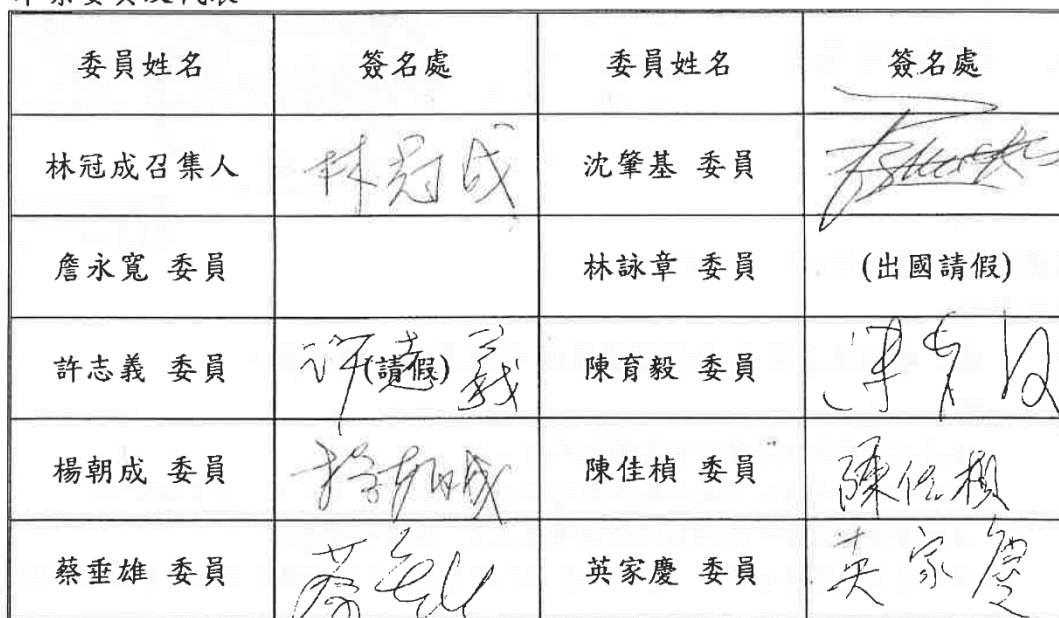 委員姓名 簽名處 委員姓名 簽名處
林冠成召集人 林冠成 沈肇基 委員
詹永寬 委員 林詠章 委員 (出國請假)
許志義 委員 許志義 (請假) 陳育毅 委員 陳育毅
楊朝成 委員 楊朝成 陳佳楨 委員 陳佳楨
蔡垂雄 委員 蔡垂雄 英家慶 委員 英家慶